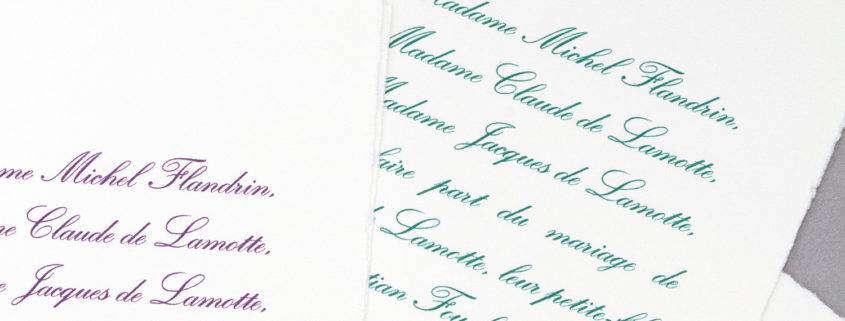 me Michel Flandrin,
Claude de Lamotte,
Jacques de Lamotte,
adame Michel Flandrin,
Madame Claude de Lamotte,
adame Jacques de Lamotte,
faire part du mariage de
Lamotte, leur petite-
tian